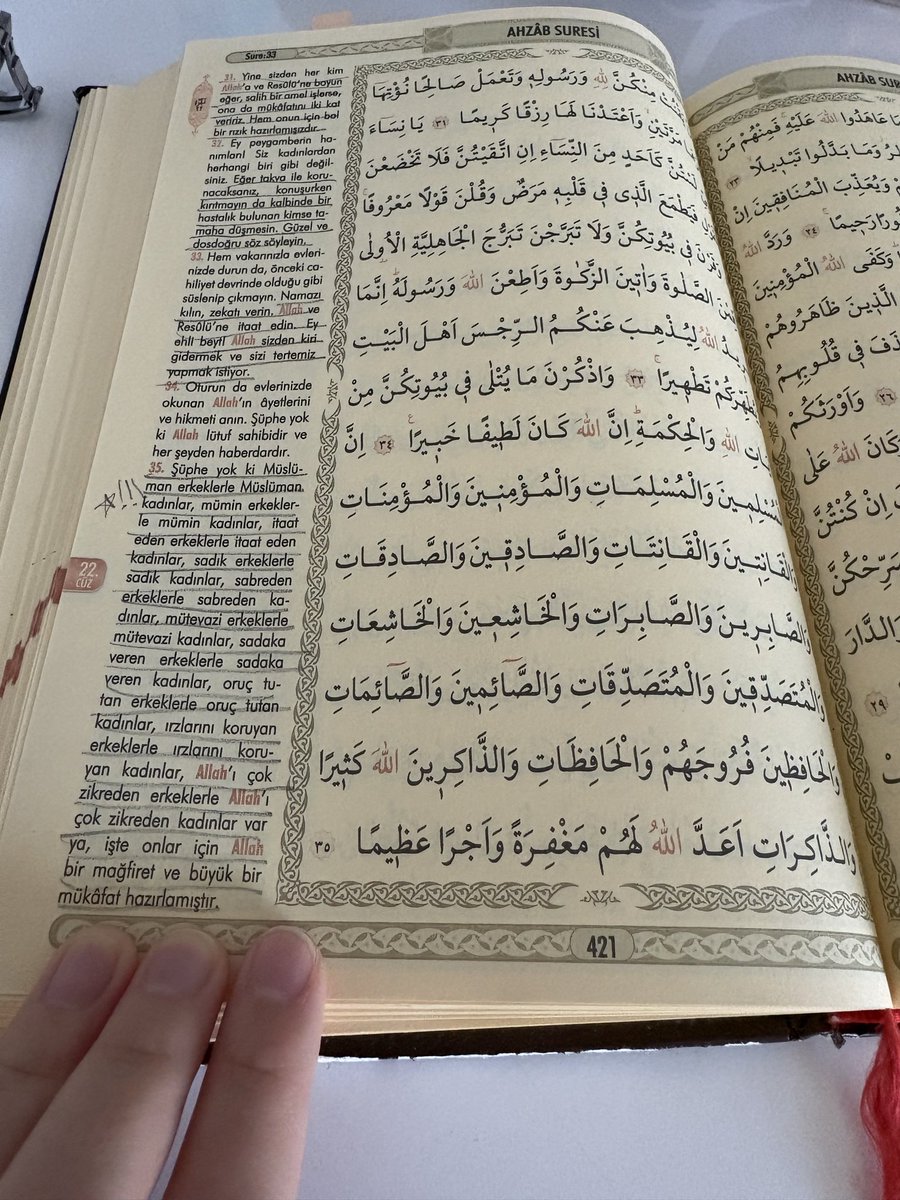 Sure:33
AHZÂB SURESİ
31. Yine sizden her kim
Allah'a ve Resûlü'ne boyun
eğer, salih bir amel işlerse,
ona da mükâfatını iki kat
veririz. Hem onun için bol
bir rızık hazırlamışızdır.
32. Ey peygamberin ha-
nımları! Siz kadınlardan
herhangi biri gibi değil-
siniz. Eğer takva ile koru-
nacaksanız, konuşurken
kırıtmayın da kalbinde bir
hastalık bulunan kimse ta-
maha düşmesin. Güzel ve
dosdoğru söz söyleyin.
33. Hem vakarınızla evleri-
nizde durun da, önceki ca-
hiliyet devrinde olduğu gibi
süslenip çıkmayın. Namazı
kılın, zekatı verin, Allah ve
Resûlü'ne itaat edin. Ey
ehli beyt! Allah sizden kiri
gidermek ve sizi tertemiz
yapmak istiyor.
34. Oturun da evlerinizde
okunan Allah'ın âyetlerini
ve hikmeti anın. Şüphe yok
ki Allah lütuf sahibidir ve
her şeyden haberdardır.
35. Şüphe yok ki Müslü-
man erkeklerle Müslüman
kadınlar, mümin erkekler-
le mümin kadınlar, itaat
eden erkeklerle itaat eden
kadınlar, sadık erkeklerle
sadık kadınlar, sabreden
erkeklerle sabreden ka-
dınlar, mütevazi erkeklerle
mütevazi kadınlar, sadaka
veren erkeklerle sadaka
veren kadınlar, oruç tu-
tan erkeklerle oruç tutan
kadınlar, ırzlarını koruyan
erkeklerle ırzlarını koru-
yan kadınlar, Allah'ı çok
zikreden erkeklerle Allah'ı
çok zikreden kadınlar var
ya, işte onlar için Allah
bir mağfiret ve büyük bir
mükâfat hazırlamıştır.
!!!
22.
CÜZ
مِنْكُنَّ لِلّٰهِ وَرَسُولِهِ وَتَعْمَلْ صَالِحًا نُؤْتِهَا
مَرَّتَيْنِ وَاَعْتَدْنَا لَهَا رِزْقًا كَرِيمًا ٣١ يَا نِسَاءَ
كَاَحَدٍ مِنَ النِّسَاءِ اِنِ اتَّقَيْتُنَّ فَلَا تَخْضَعْنَ
فَيَطْمَعَ الَّذِي فِي قَلْبِهِ مَرَضٌ وَقُلْنَ قَوْلًا مَعْرُوفًا
وَقَرْنَ فِي بُيُوتِكُنَّ وَلَا تَبَرَّجْنَ تَبَرُّجَ الْجَاهِلِيَّةِ الْاُولٰى
الصَّلٰوةَ وَاٰتِينَ الزَّكٰوةَ وَاَطِعْنَ اللّٰهَ وَرَسُولَهُ اِنَّمَا
اللّٰهُ لِيُذْهِبَ عَنْكُمُ الرِّجْسَ اَهْلَ الْبَيْتِ
تَطْهِيرًا ٣٣ وَاذْكُرْنَ مَا يُتْلٰى فِي بُيُوتِكُنَّ مِنْ
اللّٰهِ وَالْحِكْمَةِ اِنَّ اللّٰهَ كَانَ لَطِيفًا خَبِيرًا ٣٤ اِنَّ
الْمُسْلِمِينَ وَالْمُسْلِمَاتِ وَالْمُؤْمِنِينَ وَالْمُؤْمِنَاتِ
وَالْقَانِتِينَ وَالْقَانِتَاتِ وَالصَّادِقِينَ وَالصَّادِقَاتِ
وَالصَّابِرِينَ وَالصَّابِرَاتِ وَالْخَاشِعِينَ وَالْخَاشِعَاتِ
وَالْمُتَصَدِّقِينَ وَالْمُتَصَدِّقَاتِ وَالصَّائِمِينَ وَالصَّائِمَاتِ
وَالْحَافِظِينَ فُرُوجَهُمْ وَالْحَافِظَاتِ وَالذَّاكِرِينَ اللّٰهَ كَثِيرًا
وَالذَّاكِرَاتِ اَعَدَّ اللّٰهُ لَهُمْ مَغْفِرَةً وَاَجْرًا عَظِيمًا ٣٥
421
AHZÂB
عَاهَدُوا اللّٰهَ عَلَيْهِ فَمِنْهُمْ مَنْ
وَمَا بَدَّلُوا تَبْدِيلًا ٢٣
وَيُعَذِّبَ الْمُنَافِقِينَ اِنْ
٢٤ وَرَدَّ اللّٰهُ
وَكَفَى اللّٰهُ الْمُؤْمِنِينَ
الَّذِينَ ظَاهَرُوهُمْ
فِي قُلُوبِهِمُ
٢٦ وَاَوْرَثَكُمْ
اللّٰهُ عَلٰى
اِنْ كُنْتُنَّ
وَالدَّارَ
٢٩